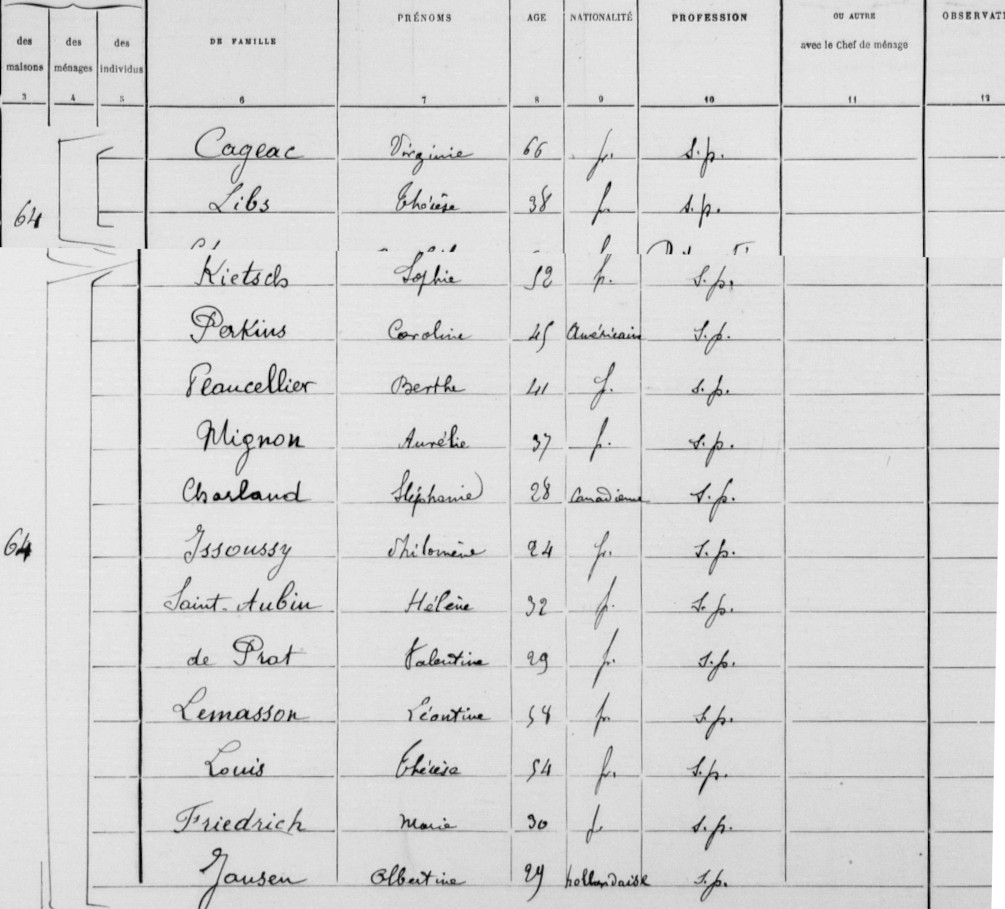 PRÉNOMS AGE NATIONALITÉ PROFESSION OU AUTRE OBSERVAT
des des des DE FAMILLE avec le Chef de ménage
maisons ménages individus
3 4 5 6 7 8 9 10 11 12
Cageac Virginie 66 fr. S.p.
64 Libs Thérèse 38 fr. s.p.
Kietsch Sophie 52 fr. S.p.
Perkins Caroline 45 Américaine S.p.
Peaucellier Berthe 41 f. s.p.
Mignon Aurélie 37 fr. s.p.
Charland Stéphanie 28 Canadienne S.p.
64 Issoussy Philomène 24 fr. S.p.
Saint-Aubin Hélène 32 fr. S.p.
de Prat Valentine 29 fr. S.p.
Lemasson Léontine 54 fr. S.p.
Louis Thérèse 54 fr. S.p.
Friedrich Marie 30 fr. s.p.
Jansen Albertine 29 hollandaise S.p.